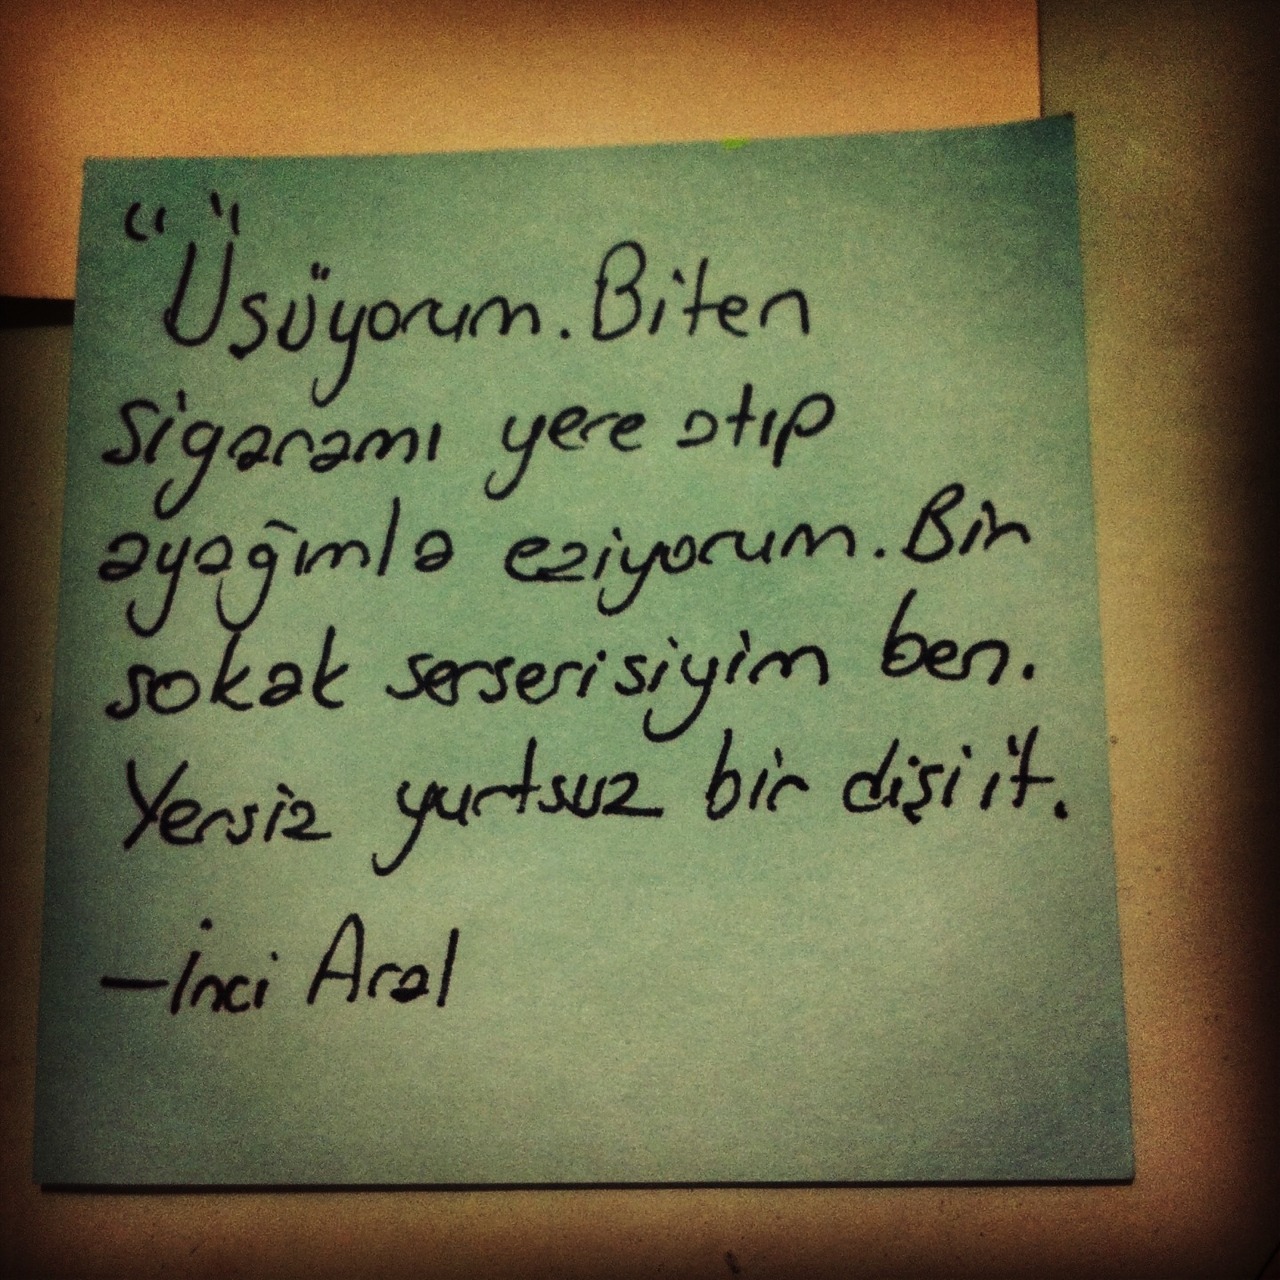 "Üşüyorum. Biten
sigaramı yere atıp
ayağımla eziyorum. Bir
sokak serserisiyim ben.
Yersiz yurtsuz bir dişi it.
—İnci Aral